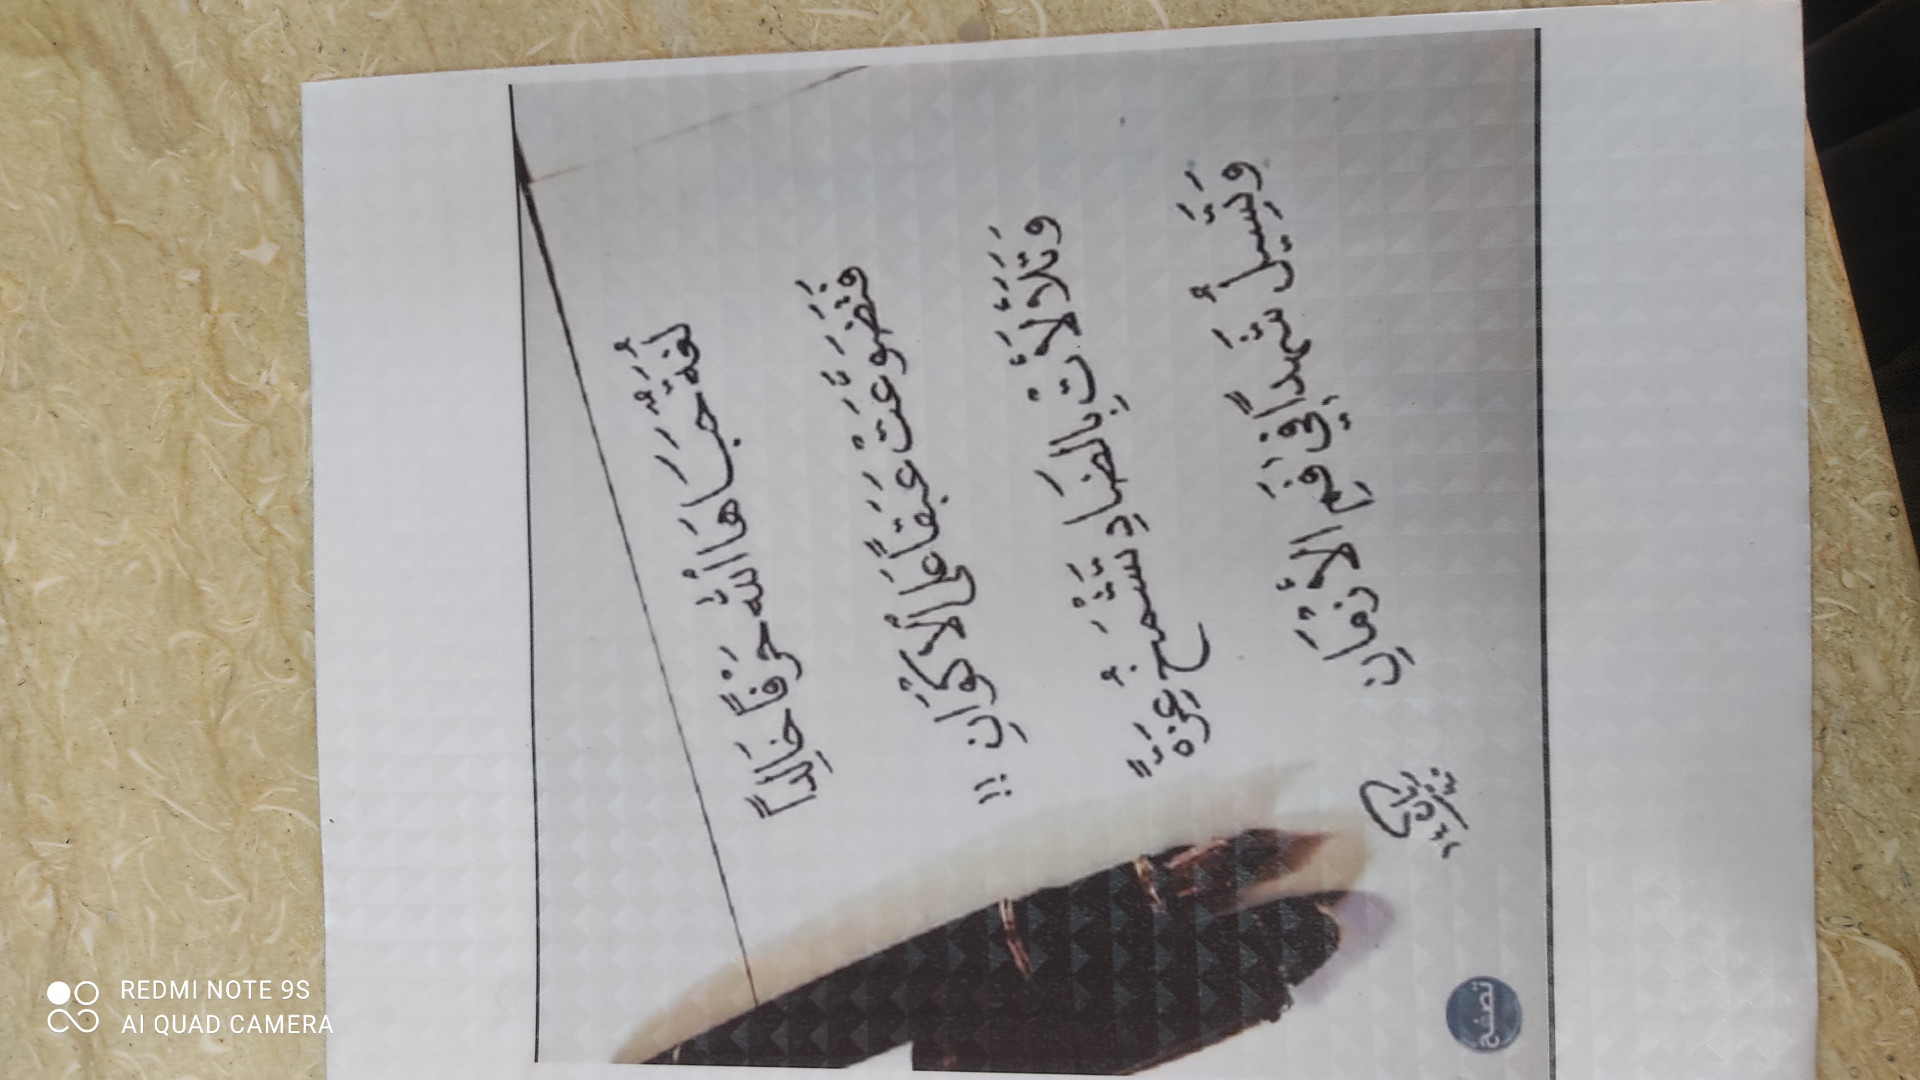 لُغَةٌ حَبَاهَا اللّٰهُ حَرْفًا خَالِدًا
فَتَضَوَّعَتْ عَبَقًا عَلَى الْأَكْوَانِ !!
وَتَلَأْلَأَتْ بِالضَادِ تَشْمَخُ عِزَّةً
وَتَسِيلُ شَهْدًا فِي فَمِ الْأَزْمَانِ
تصفح
REDMI NOTE 9S
AI QUAD CAMERA